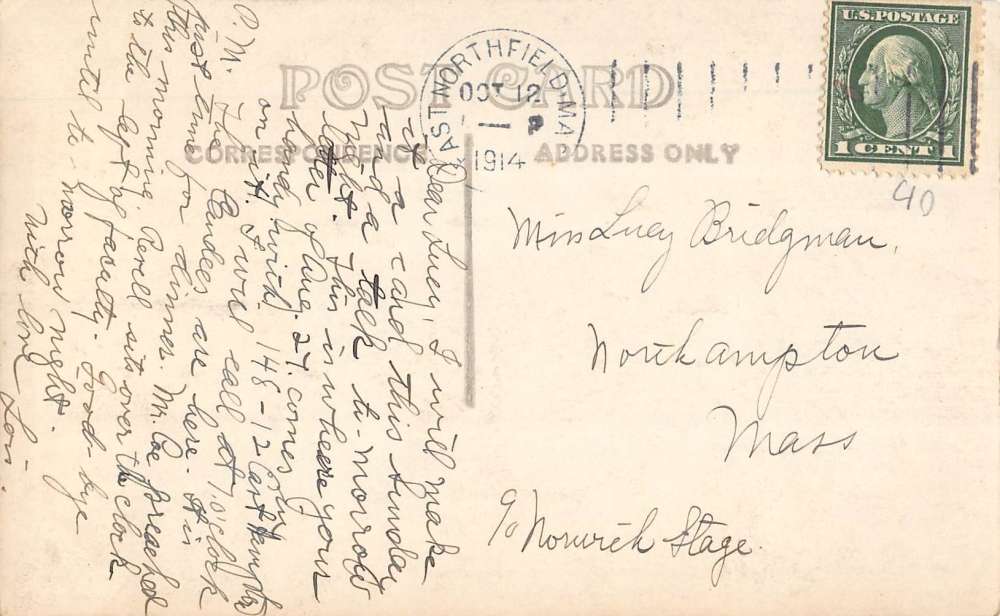 POST CARD
CORRESPONDENCE
ADDRESS ONLY
EAST NORTHFIELD MA
OCT 12
1914
U.S. POSTAGE
1 CENT 1
40
Dear Lucy, I will make
it a card this Sunday
and a talk to-morrow
night. This is where your
letter of Aug. 27. comes in
handy with 148-12 Easthampton
on it. I will call at 7. o'clock
P.M. The are here. It is
just time for dinner. Mr. Coe preached
this morning. sits over the clock
to the left of faculty. Good-bye
until to-morrow night.
With love
Lois.
Miss Lucy Bridgman,
Northampton
Mass
c/o Norwich Stage.